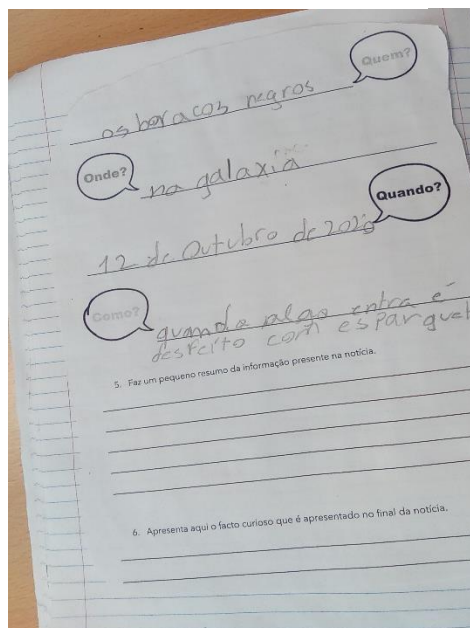 Quem?
os boracos negros
Onde?
na galaxia
Quando?
12 de Outubro de
Como?
quando algo entra é
desfeito com esparguet
5. Faz um pequeno resumo da informação presente na notícia.
6. Apresenta aqui o facto curioso que é apresentado no final da notícia.